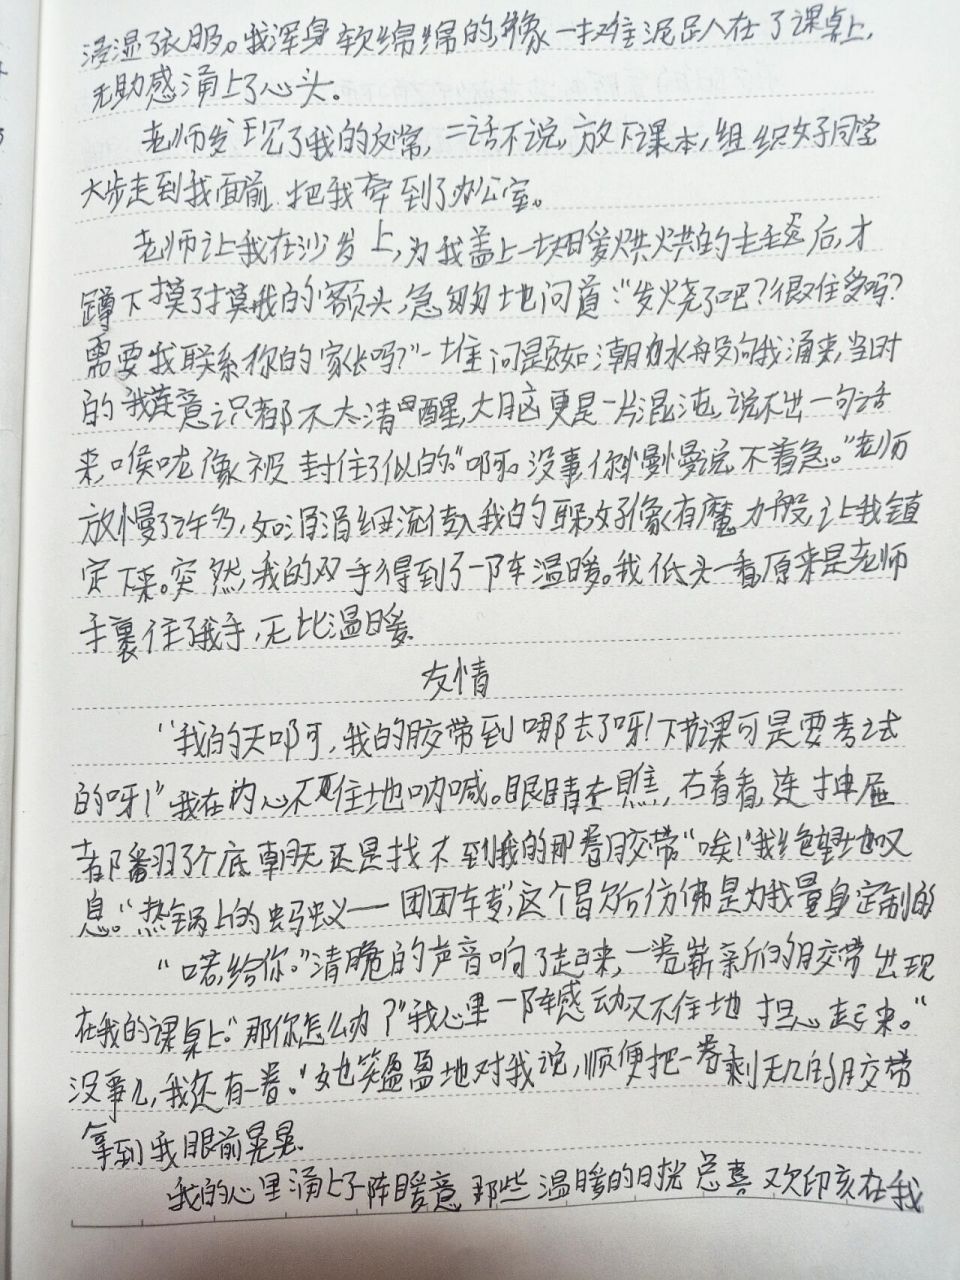 浸湿了衣服。我浑身软绵绵的,像一摊泥趴在了课桌上,
无助感涌上了心头。
老师发现了我的反常,二话不说,放下课本,组织好同学
大步走到我面前,把我牵到了办公室。
老师让我在沙发上,为我盖上一块暖烘烘的毛毯后,才
蹲下摸了摸我的额头,急匆匆地问道:“发烧了吧?很难受吗?
需要我联系你的家长吗?”一堆问题如潮水般向我涌来,当时
的我意识都不太清醒,大脑更是一片混沌,说不出一句话
来,喉咙像被封住了似的。“啊。没事,你慢慢说,不着急。”老师
放慢了许多,如涓涓细流传入我的耳朵,好像有魔力般,让我镇
定下来。突然,我的双手得到了一阵温暖。我低头一看,原来是老师
手裹住了我手,无比温暖.
友情
“我的天啊,我的胶带到哪去了呀!下节课可是要考试
的呀!”我在内心不住地呐喊。眼睛左瞧,右看看,连抽屉
都翻了个底朝天还是找不到我的那卷胶带“唉!”我绝望地叹
息。“热锅上的蚂蚁——团团转”,这个冒号仿佛是为我量身定制的
“喏,给你。”清脆的声音响了起来,一卷崭新的胶带出现
在我的课桌上。“那你怎么办?”我心里一阵感动又不住地担心起来。“
没事儿,我还有一卷。”她笑盈盈地对我说,顺便把一卷剩无几的胶带
拿到我眼前晃晃.
我的心里涌上了阵暖意,那些温暖的日光总喜欢印刻在我